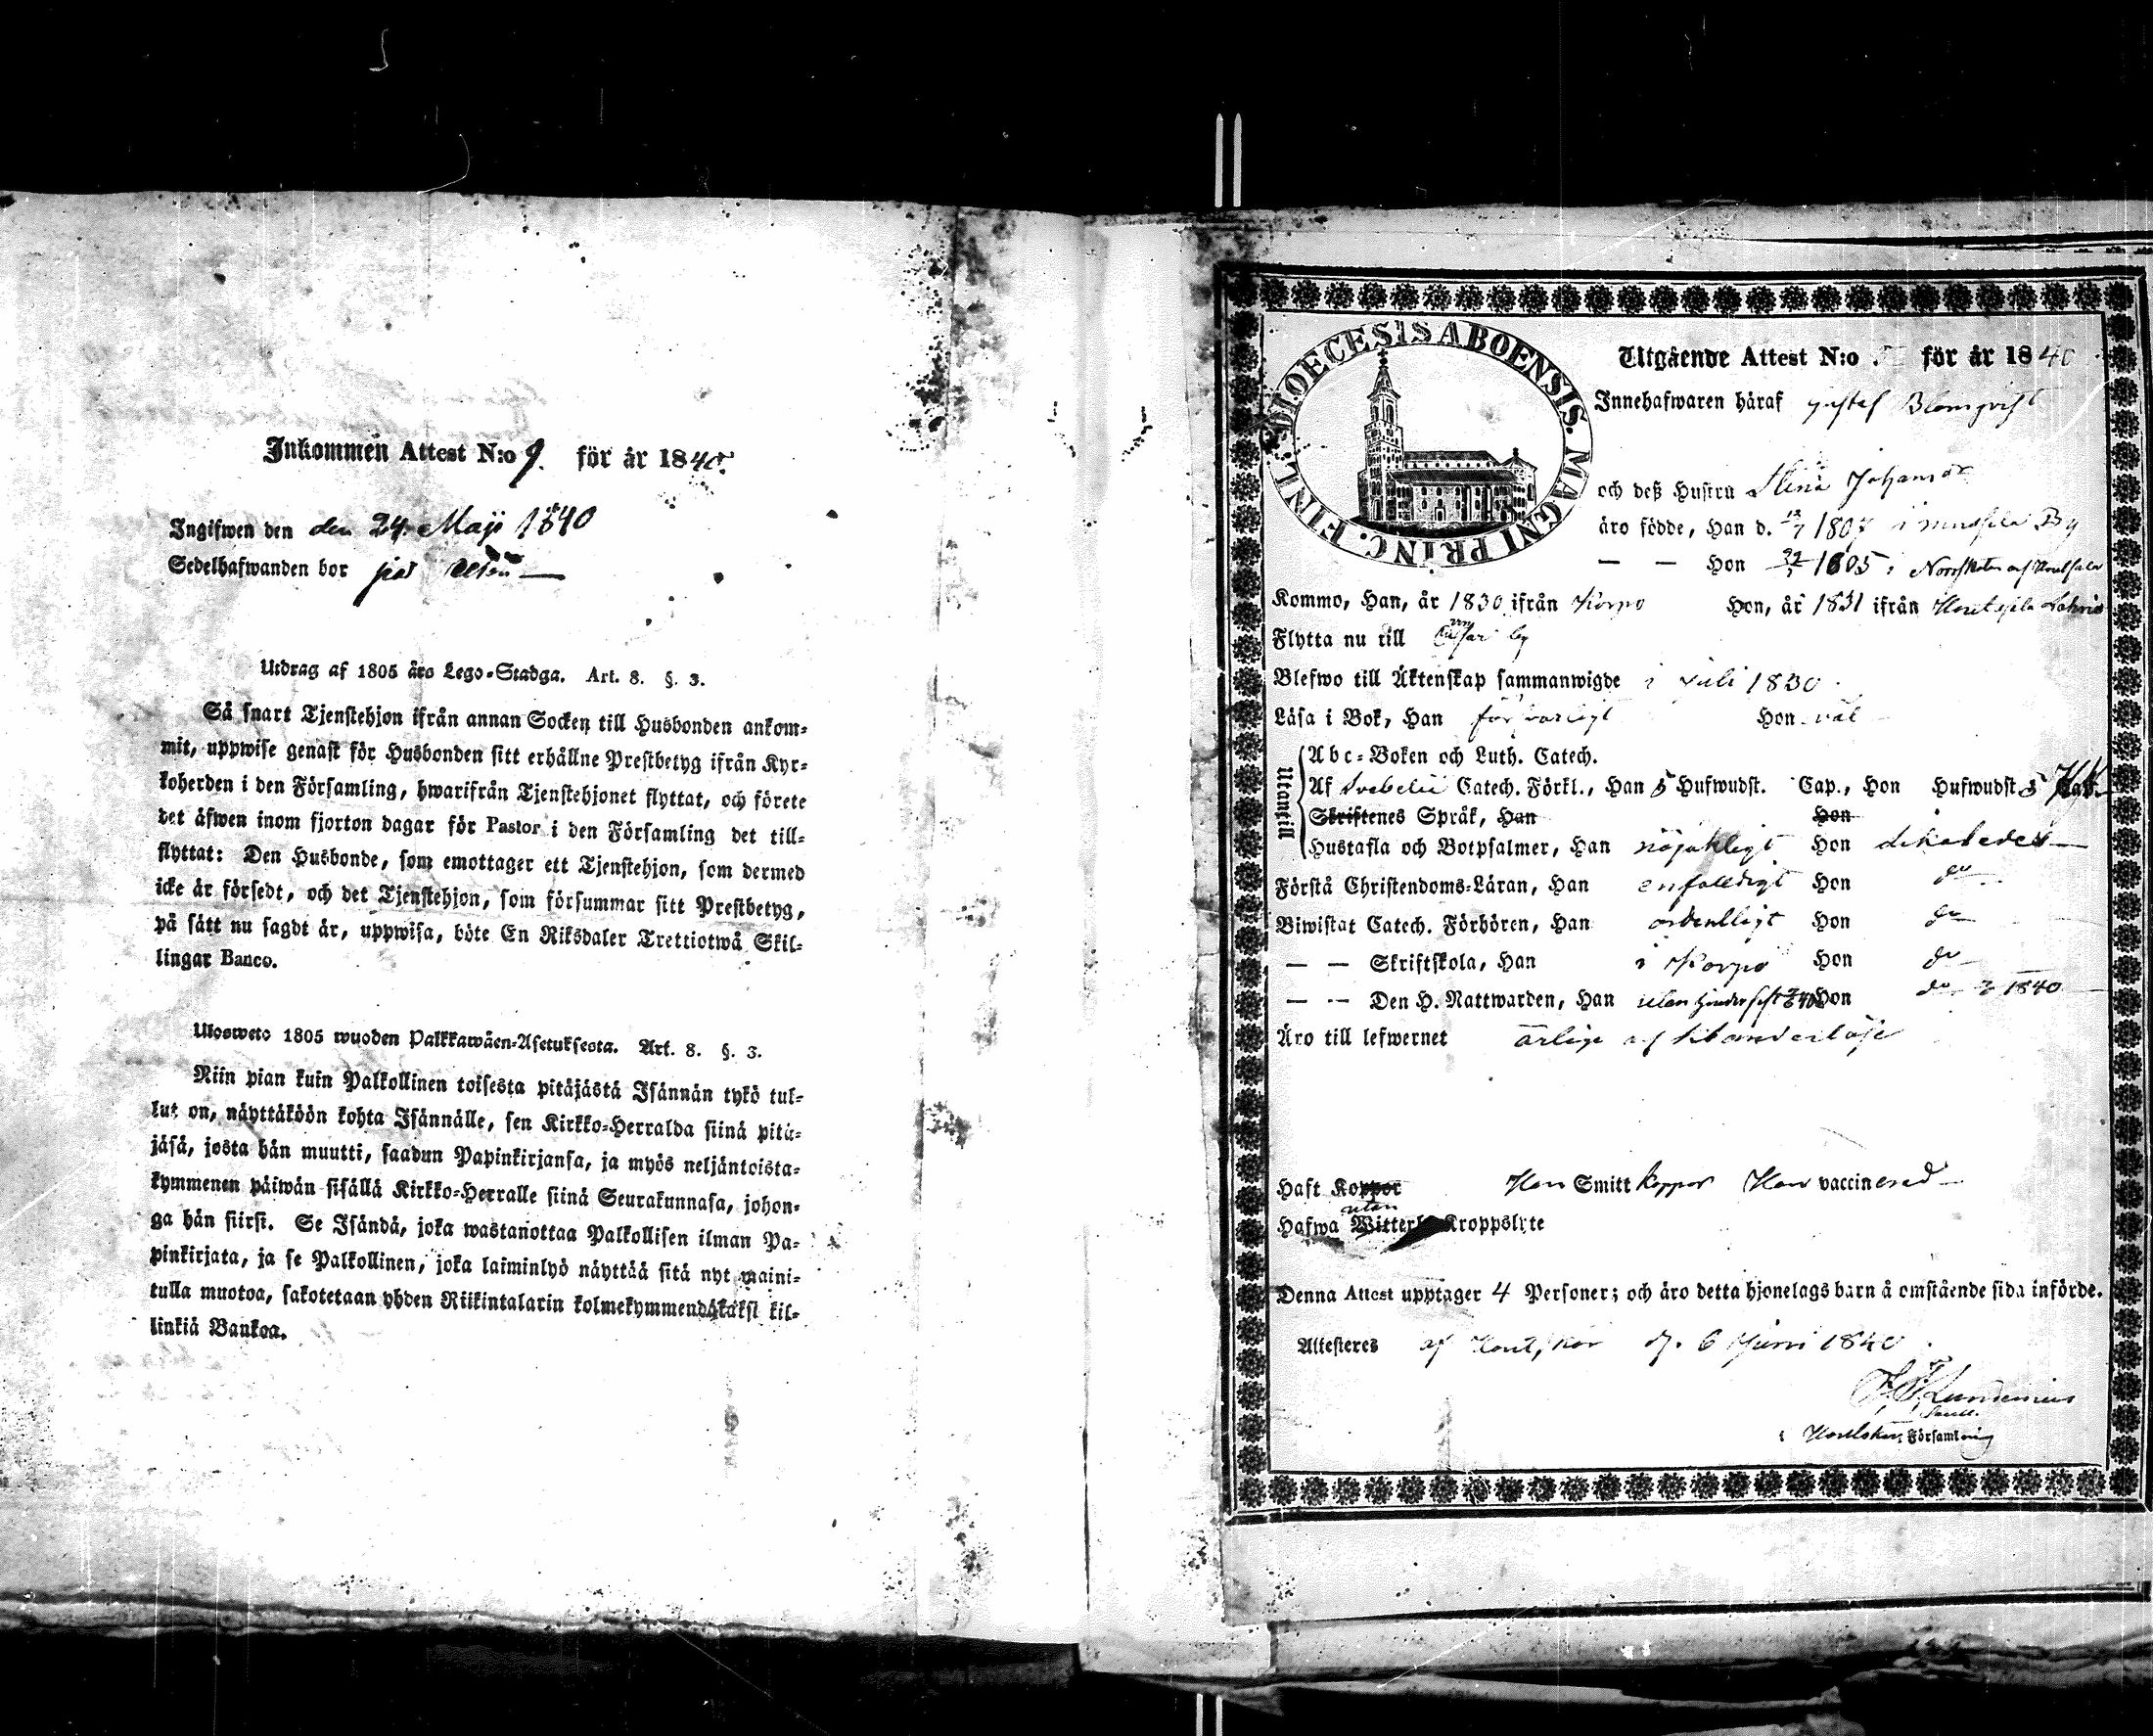 Inkommen Attest N:o 9. för år 1840.
Ingifwen den den 24 Maji 1840
Sedelhafwanden bor på
Utdrag af 1805 års Lego-Stadga. Art. 8. §. 3.
Så snart Tjenstehjon ifrån annan Socken till Husbonden ankom-
mit, uppwise genast för Husbonden sitt erhållne Prestbetyg ifrån Kyr-
koherden i den Församling, hwarifrån Tjenstehjonet flyttat, och förete
det äfwen inom fjorton dagar för Pastor i den Församling det till-
flyttat: Den Husbonde, som emottager ett Tjenstehjon, som dermed
icke är försedt, och det Tjenstehjon, som försummar sitt Prestbetyg,
på sätt nu sagdt är, uppwisa, böte En Riksdaler Trettiotwå Skil-
lingar Banco.
Ulosweto 1805 wuoden Palkkawäen-Asetuksesta. Art. 8. §. 3.
Niin pian kuin Palkollinen toisesta pitäjästä Isännän tykö tul-
lut on, näyttäköön kohta Isännälle, sen Kirkko-Herralda siinä pitä-
jäsä, josta hän muutti, saadun Papinkirjansa, ja myös neljäntoista-
kymmenen päiwän sisällä Kirkko-Herralle siinä Seurakunnasa, johon-
ga hän siirsi. Se Isändä, joka wastanottaa Palkollisen ilman Pa-
pinkirjata, ja se Palkollinen, joka laiminlyö näyttää sitä nyt maini-
tulla muotoa, sakotetaan yhden Riikintalarin kolmekymmendäkaksi kil-
linkiä Bankoa.
DIOECESIS ABOENSIS. MAGNI PRINC. FINL.
Utgående Attest N:o för år 1840
Innehafwaren häraf Gustaf Blomqvist
och deß Hustru Stina Johansdr
äro födde, Han d. 12/7 1807 i By
— — Hon 1805 i
Kommo, Han, år 1830 ifrån Korpo Hon, år 1831 ifrån
Flytta nu till by
Blefwo till Äktenskap sammanwigde i Juli 1830.
Läsa i Bok, Han försvarligt Hon väl
Utantill
Abc-Boken och Luth. Catech.
Af Svebelii Catech. Förkl., Han 5 Hufwudst. Cap., Hon Hufwudst. 5
Skriftenes Språk, Han Hon
Hustafla och Botpsalmer, Han nöjaktligt Hon likaledes
Förstå Christendoms-Läran, Han enfaldigt Hon do
Biwistat Catech. Förhören, Han ordentligt Hon do
— — Skriftskola, Han i Korpo Hon do
— — Den H. Nattwarden, Han utan hinder sist Hon do 1840
Äro till lefwernet ärlige af klanderlöse
Haft Koppor Han Smittkoppor Hon vaccinerad
utan
Hafwa Witterl. Kroppslyte
Denna Attest upptager 4 Personer; och äro detta hjonelags barn å omstående sida införde.
Attesteres af Houtskär d. 6 Juni 1840
Lundenius
i Houtskärs Församling